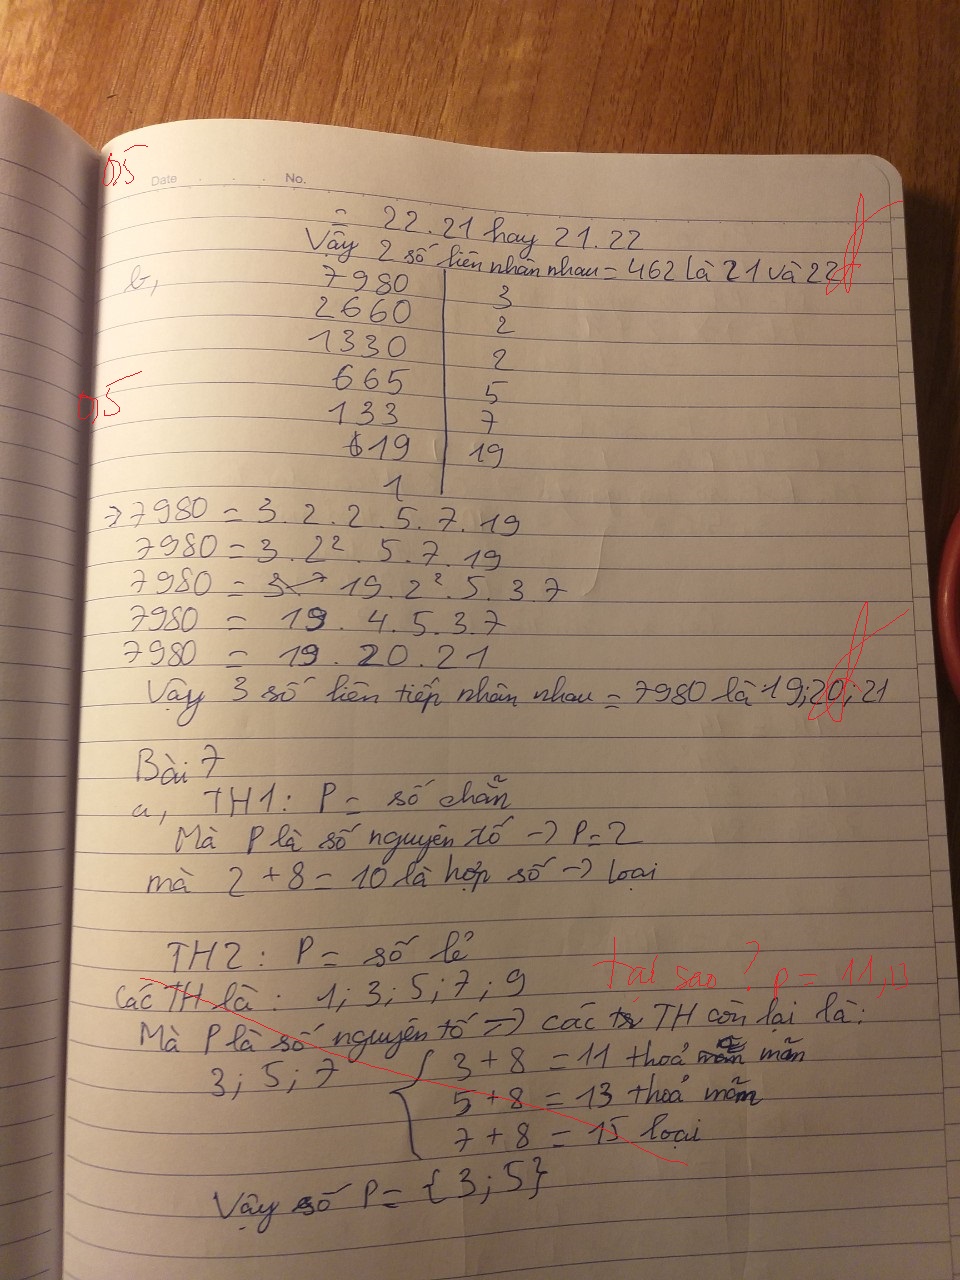 0,5
Date No.
= 22.21 hay 21.22
Vậy 2 số liên nhân nhau = 462 là 21 và 22
b,
7980 | 3
2660 | 2
1330 | 2
665 | 5
0,5
133 | 7
19 | 19
1
=> 7980 = 3.2.2.5.7.19
7980 = 3.2².5.7.19
7980 = 19.2².5.3.7
7980 = 19.4.5.3.7
7980 = 19.20.21
Vậy 3 số liên tiếp nhân nhau = 7980 là 19;20;21
Bài 7
a, TH1: P = số chẵn
Mà P là số nguyên tố -> P=2
mà 2+8=10 là hợp số -> loại
TH2: P = số lẻ
tại sao? p = 11,13
Các TH là: 1;3;5;7;9
Mà P là số nguyên tố => các TH còn lại là:
3;5;7 { 3+8=11 thoả mãn
5+8=13 thoả mãn
7+8=15 loại
Vậy số P = {3;5}